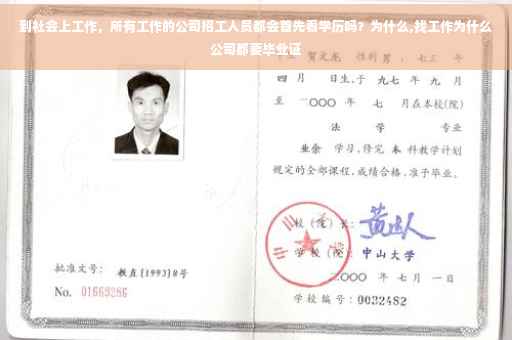 到社会上工作，所有工作的公司招工人员都会首先看学历吗？为什么,找工作为什么
公司都要毕业证
贺文龙 性别 男
四 月 日生,于 九七 年 九 月
至 二〇〇〇 年 七 月在本校(院)
法 学 专业
业余 学习,修完 本 科教学计划
规定的全部课程,成绩合格,准予毕业。
校(院)长:
学 校(院): 中山大学
批准文号: 教直[1993]8号
二〇〇〇 年 七 月 一 日
No. 01663286
学校编号: 0032482